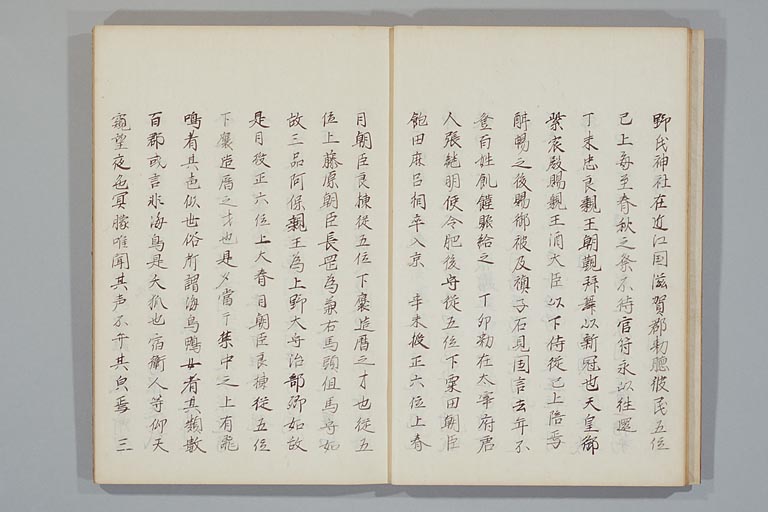 野氏神社在近江国滋賀郡勅聴彼氏五位
已上每至春秋之祭不待官符永以往還
丁未忠良親王朝覲拝舞以新冠也天皇御
紫宸殿賜親王酒大臣以下侍従已上陪焉
酣暢之後賜御被及襖子石見国言去年不
登百姓飢饉賑給之 丁卯勅在太宰府唐
人張継明便令肥後守従五位下粟田朝臣
飽田麻呂相率入京 辛未授正六位上春
日朝臣良棟従五位下褒造暦之才也従五
位上藤原朝臣長岡為兼右馬頭但馬守如
故三品阿保親王為上野大守治部卿如故
是月授正六位上大春日朝臣良棟従五位
下褒造暦之才也是夕当于禁中之上有飛
鳴者其声似世俗所謂海鳥鴨女者其類数
百群或言非海鳥是天狐也宿衛人等仰天
窺望夜色冥朦唯聞其声不弁其貞焉 三